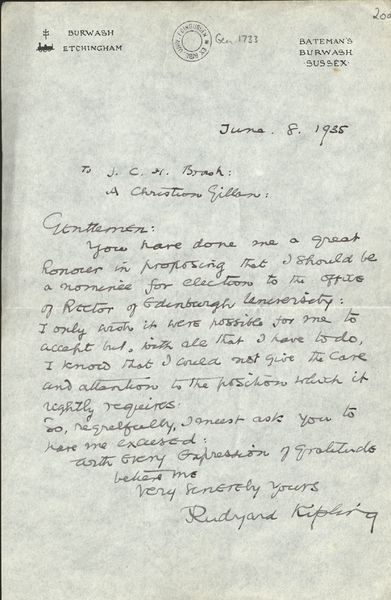 200
BURWASH
ETCHINGHAM
UNIV. EDINBURGEN
Gen 1733
BATEMAN'S
BURWASH
SUSSEX
June. 8. 1935
To J. C. H. Brash:
A Christian Gillan:
Gentlemen:
You have done me a great
honour in proposing that I should be
a nominee for election to the office
of Rector of Edinburgh University:
I only wish it were possible for me to
accept but, with all that I have to do,
I know that I could not give the care
and attention to the position which it
rightly requires.
So, regretfully, I must ask you to
have me excused:
With every expression of gratitude
believe me
Very sincerely yours
Rudyard Kipling